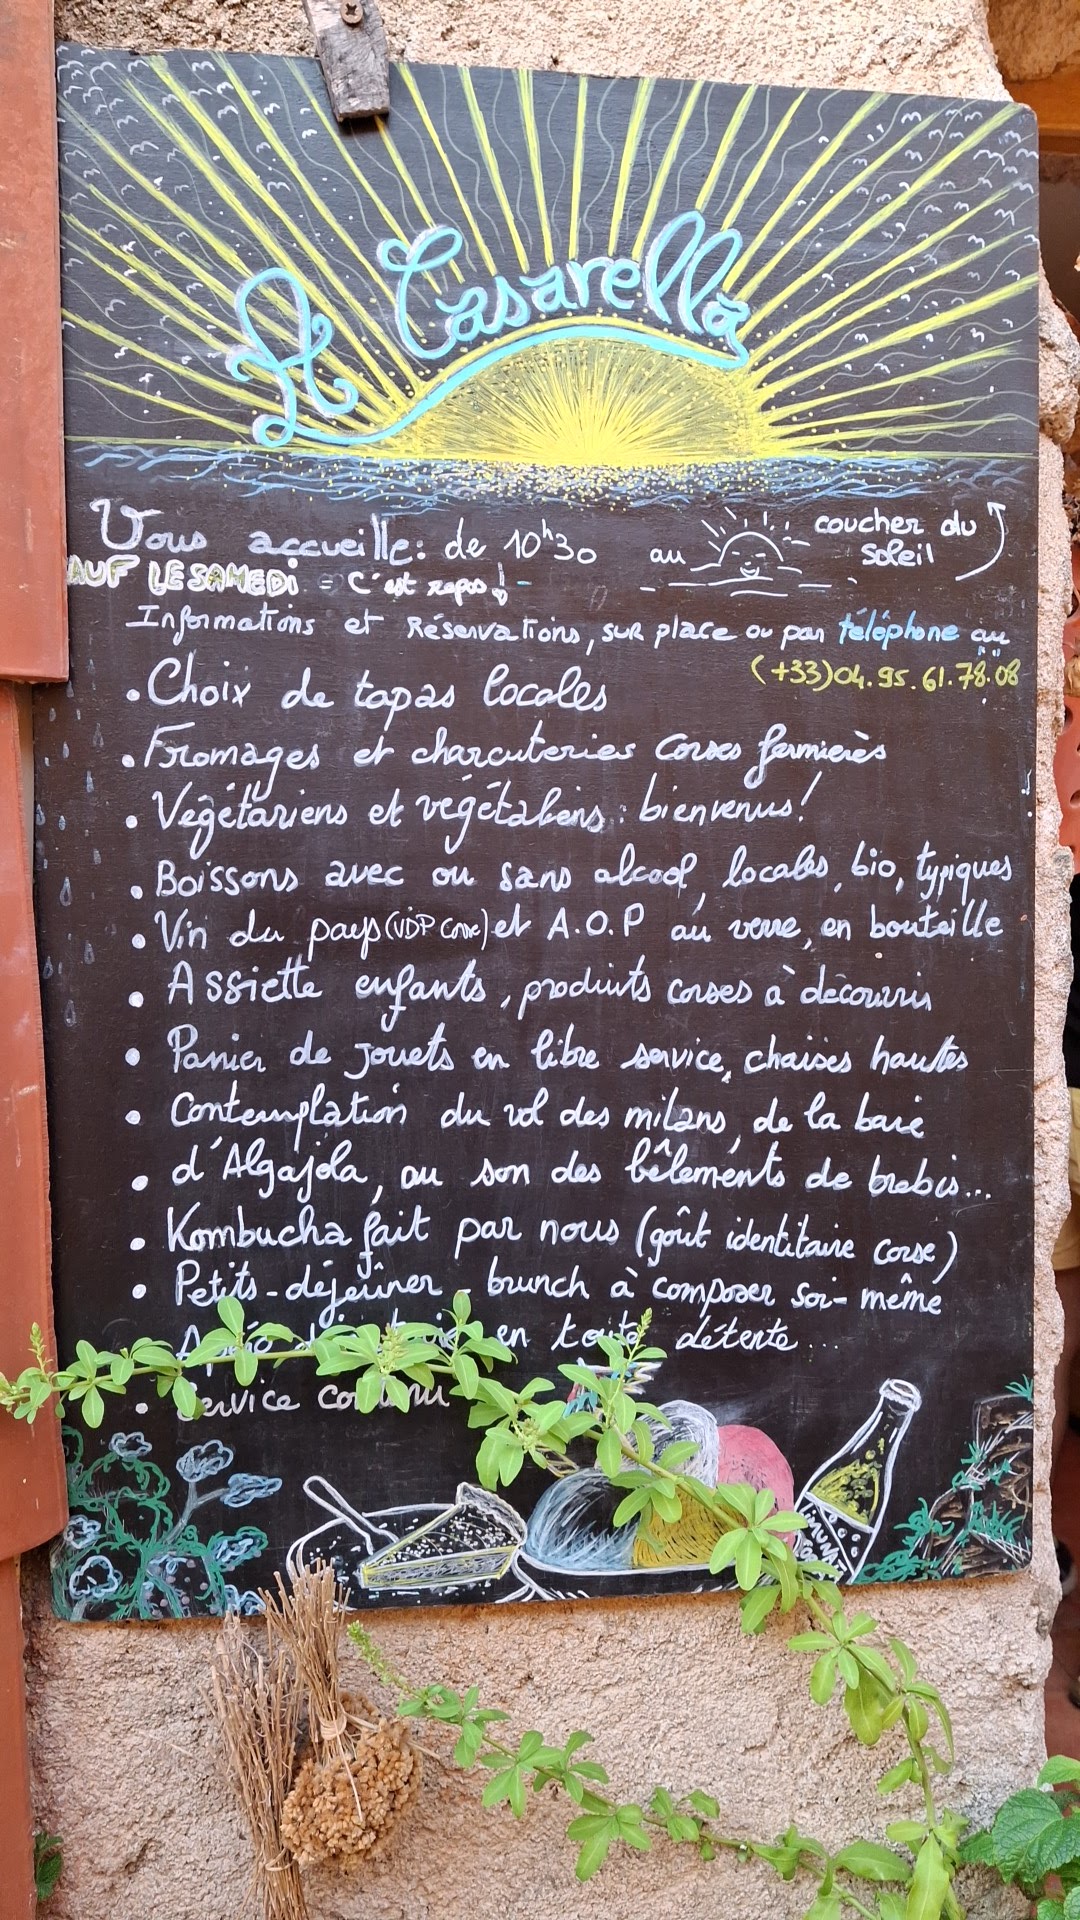 A Casarella
Vous accueille : de 10h30 au coucher du soleil
AUF LE SAMEDI = C'est repos !
Informations et Réservations, sur place ou par téléphone au
(+33)04.95.61.78.08
• Choix de tapas locales
• Fromages et charcuteries corses fermières
• Végétariens et végétaliens : bienvenus !
• Boissons avec ou sans alcool, locales, bio, typiques
• Vin du pays (VDP Corse) et A.O.P au verre, en bouteille
• Assiette enfants, produits corses à découvrir
• Panier de jouets en libre service, chaises hautes
• Contemplation du vol des milans, de la baie
• d'Algajola, au son des bêlements de brebis...
• Kombucha fait par nous (goût identitaire corse)
• Petits-déjeûner - brunch à composer soi-même
en toute détente...
• Service continu